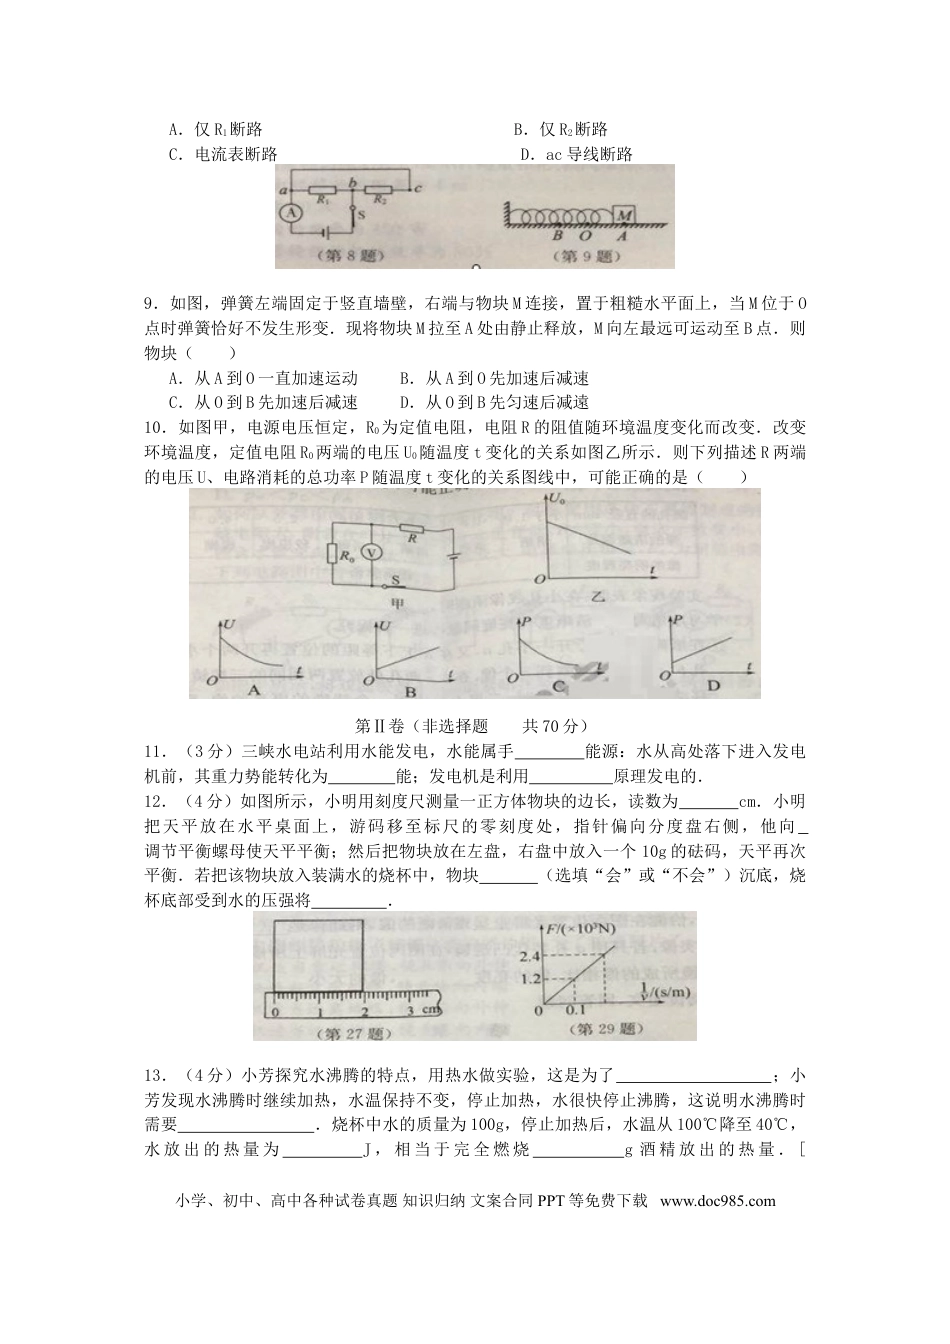 A．仅 R₁断路 B．仅 R₂断路
C．电流表断路 D．ac 导线断路
a R₁ b R₂ c
A S
（第 8 题）
M
B O A
（第 9 题）
9．如图，弹簧左端固定于竖直墙壁，右端与物块 M 连接，置于粗糙水平面上，当 M 位于 O
点时弹簧恰好不发生形变．现将物块 M 拉至 A 处由静止释放，M 向左最远可运动至 B 点．则
物块（　　）
A．从 A 到 O 一直加速运动 B．从 A 到 O 先加速后减速
C．从 O 到 B 先加速后减速 D．从 O 到 B 先匀速后减遠
10．如图甲，电源电压恒定，R₀为定值电阻，电阻 R 的阻值随环境温度变化而改变．改变
环境温度，定值电阻 R₀两端的电压 U₀随温度 t 变化的关系如图乙所示．则下列描述 R 两端
的电压 U、电路消耗的总功率 P 随温度 t 变化的关系图线中，可能正确的是（　　）
R₀ V R S
甲
U₀ O t
乙
U O t A
U O t B
P O t C
P O t D
第Ⅱ卷（非选择题　　共 70 分）
11．（3 分）三峡水电站利用水能发电，水能属手________能源：水从高处落下进入发电
机前，其重力势能转化为________能；发电机是利用__________原理发电的．
12．（4 分）如图所示，小明用刻度尺测量一正方体物块的边长，读数为_______cm．小明
把天平放在水平桌面上，游码移至标尺的零刻度处，指针偏向分度盘右侧，他向_
调节平衡螺母使天平平衡；然后把物块放在左盘，右盘中放入一个 10g 的砝码，天平再次
平衡．若把该物块放入装满水的烧杯中，物块_______（选填“会”或“不会”）沉底，烧
杯底部受到水的压强将_________．
0 1 2 3 cm
（第 27 题）
F/(×10³N)
2.4
1.2
0 0.1 1/v/(s/m)
（第 29 题）
13．（4 分）小芳探究水沸腾的特点，用热水做实验，这是为了___________________；小
芳发现水沸腾时继续加热，水温保持不变，停止加热，水很快停止沸腾，这说明水沸腾时
需要________________．烧杯中水的质量为 100g，停止加热后，水温从 100℃降至 40℃，
水放出的热量为_________J，相当于完全燃烧__________g 酒精放出的热量．[
小学、初中、高中各种试卷真题 知识归纳 文案合同 PPT 等免费下载 www.doc985.com